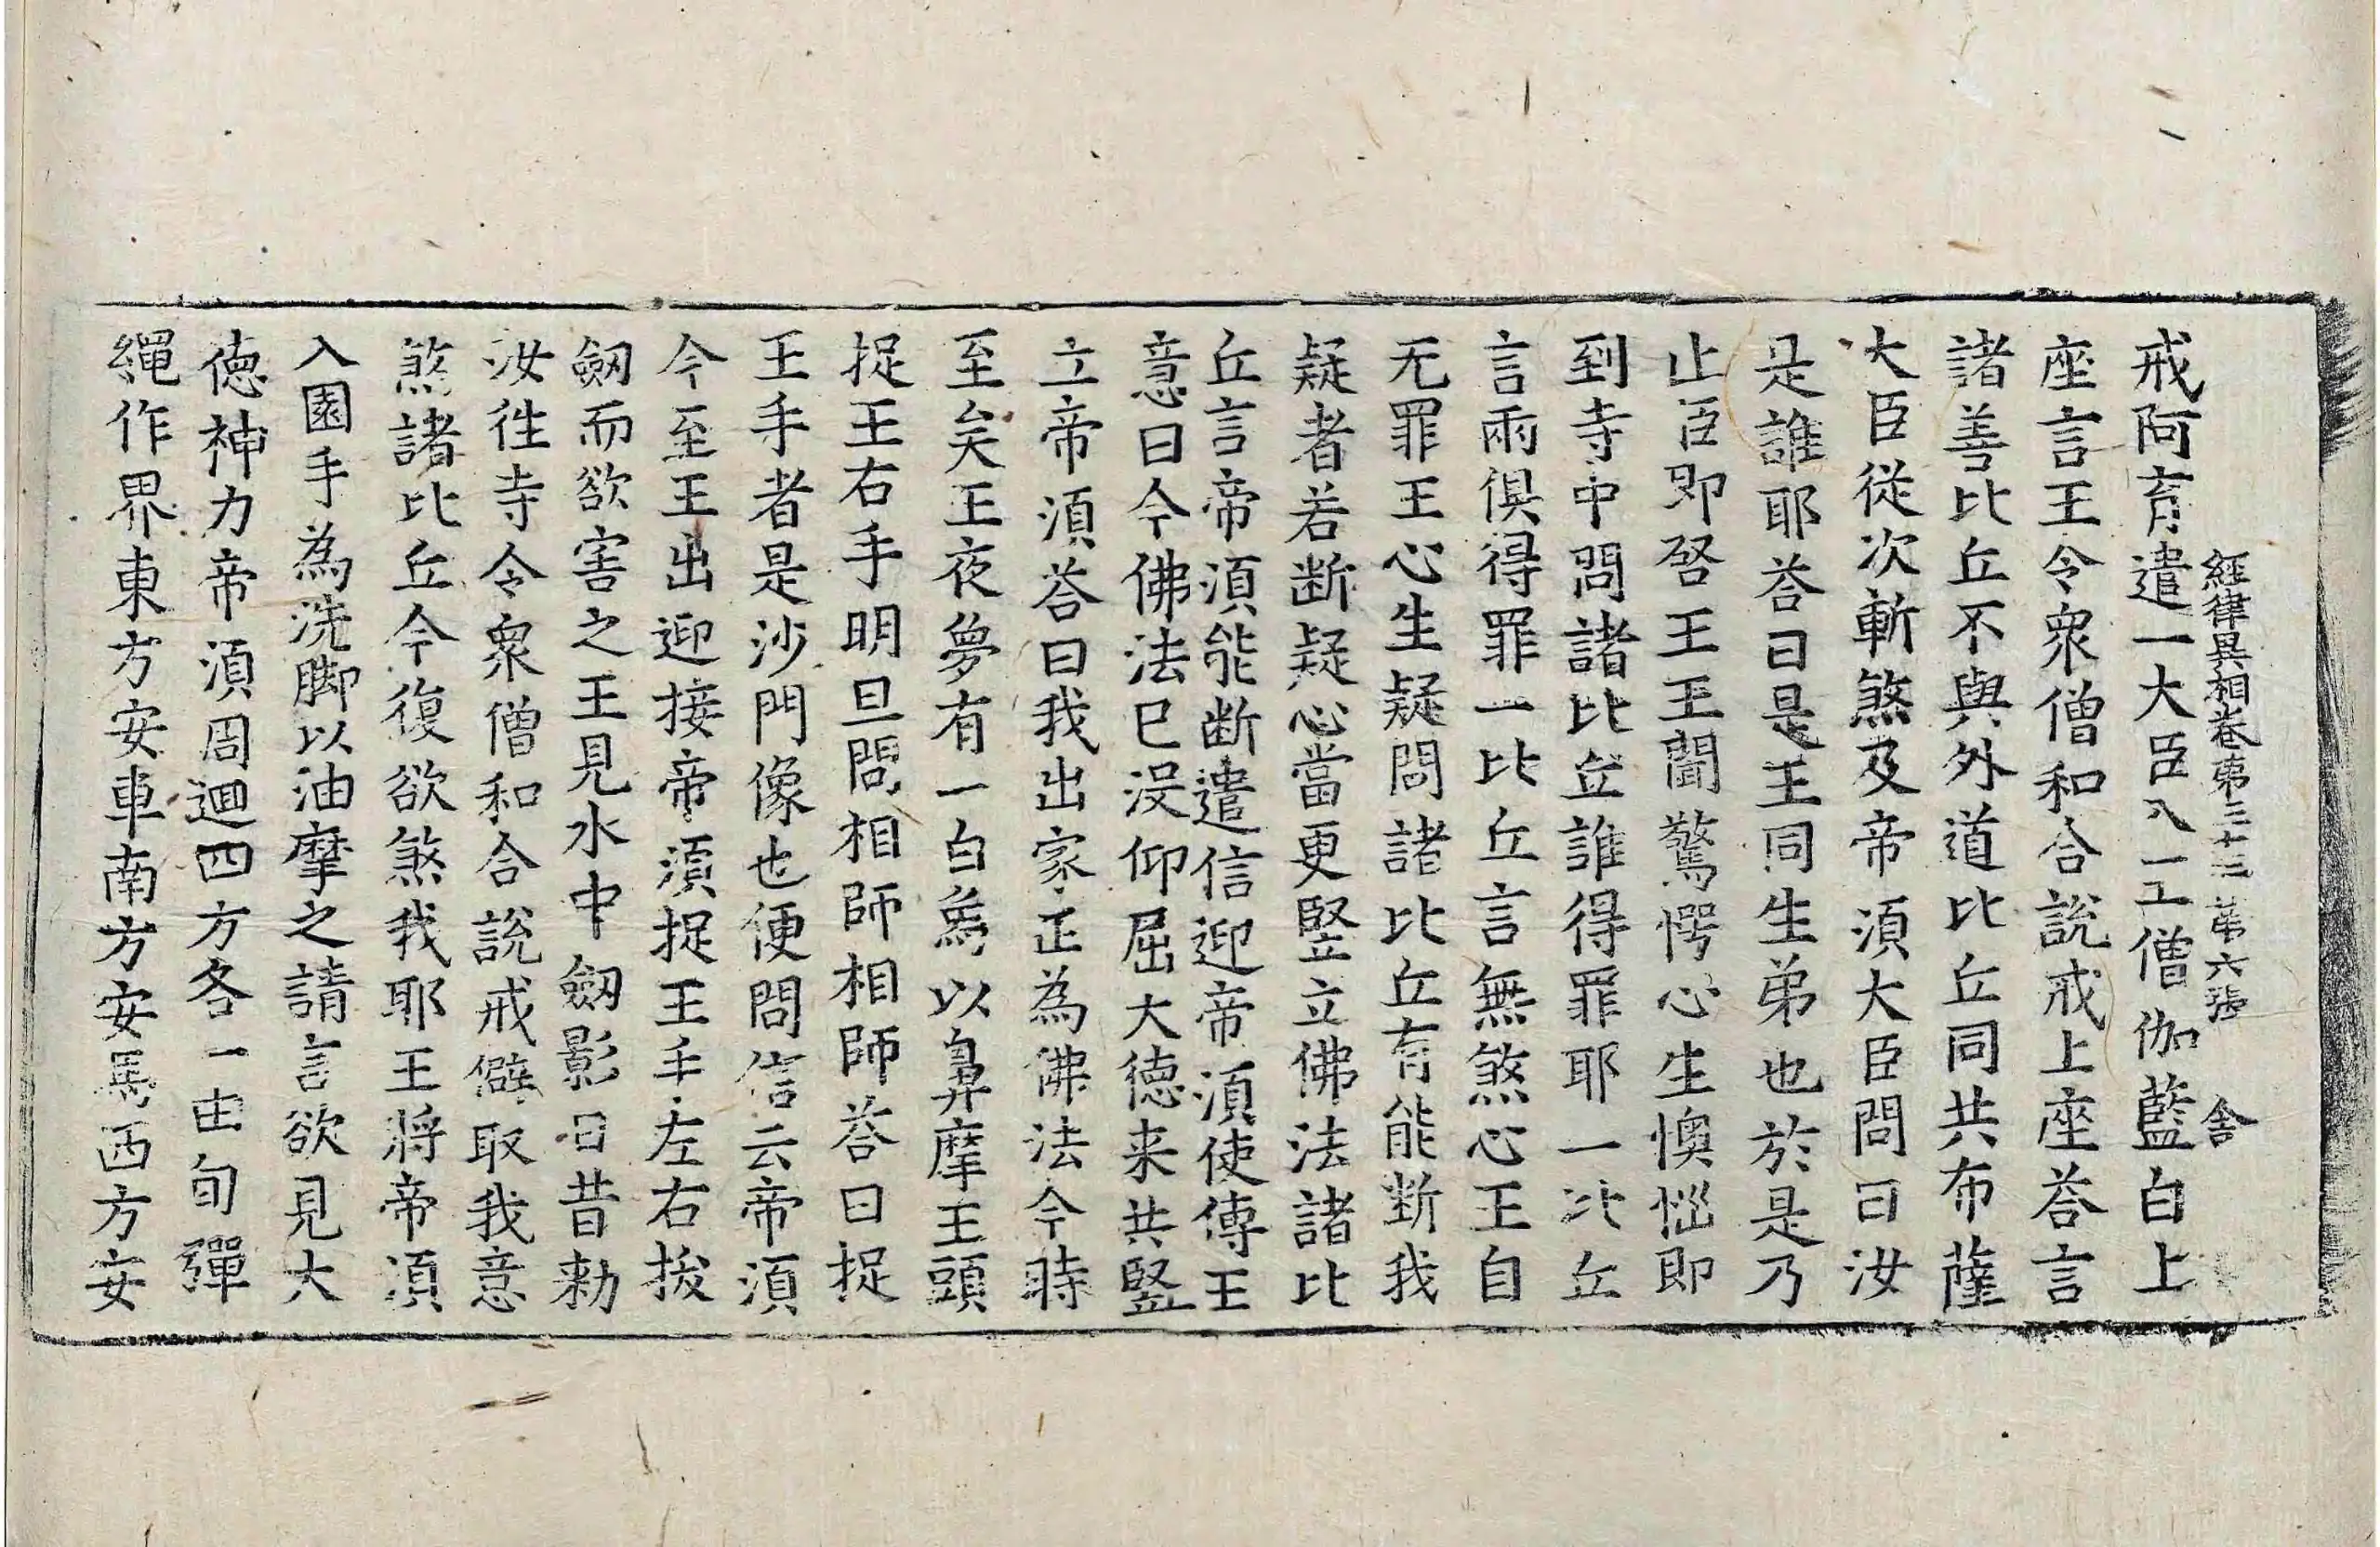 經律異相卷第三十三 第六張 舍
戒阿育遣一大臣入一工僧伽藍白上
座言王令衆僧和合說戒上座荅言
諸善比丘不與外道比丘同共布薩
大臣從次斬煞及帝湏大臣問曰汝
是誰耶荅曰是王同生弟也於是乃
止臣即啓王王聞驚愕心生懊惱即
到寺中問諸比丘誰得罪耶一比丘
言兩俱得罪一比丘言無煞心王自
无罪王心生疑問諸比丘有能斷我
疑者若断疑心當更竪立佛法諸比
丘言帝湏能断遣信迎帝湏使傳王
意曰今佛法已沒仰屈大德来共竪
立帝湏荅曰我出家正為佛法今時
至矣王夜夢有一白為以鼻摩王頭
捉王右手明旦問相師相師荅曰捉
王手者是沙門像也便問信云帝湏
今至王出迎接帝湏捉王手左右拔
劒而欲害之王見水中劒影曰昔勑
汝徃寺令衆僧和合說戒僻取我意
煞諸比丘今復欲煞我耶王將帝湏
入園手為洗脚以油摩之請言欲見大
德神力帝湏周迴四方各一由旬彈
繩作界東方安車南方安馬西方安